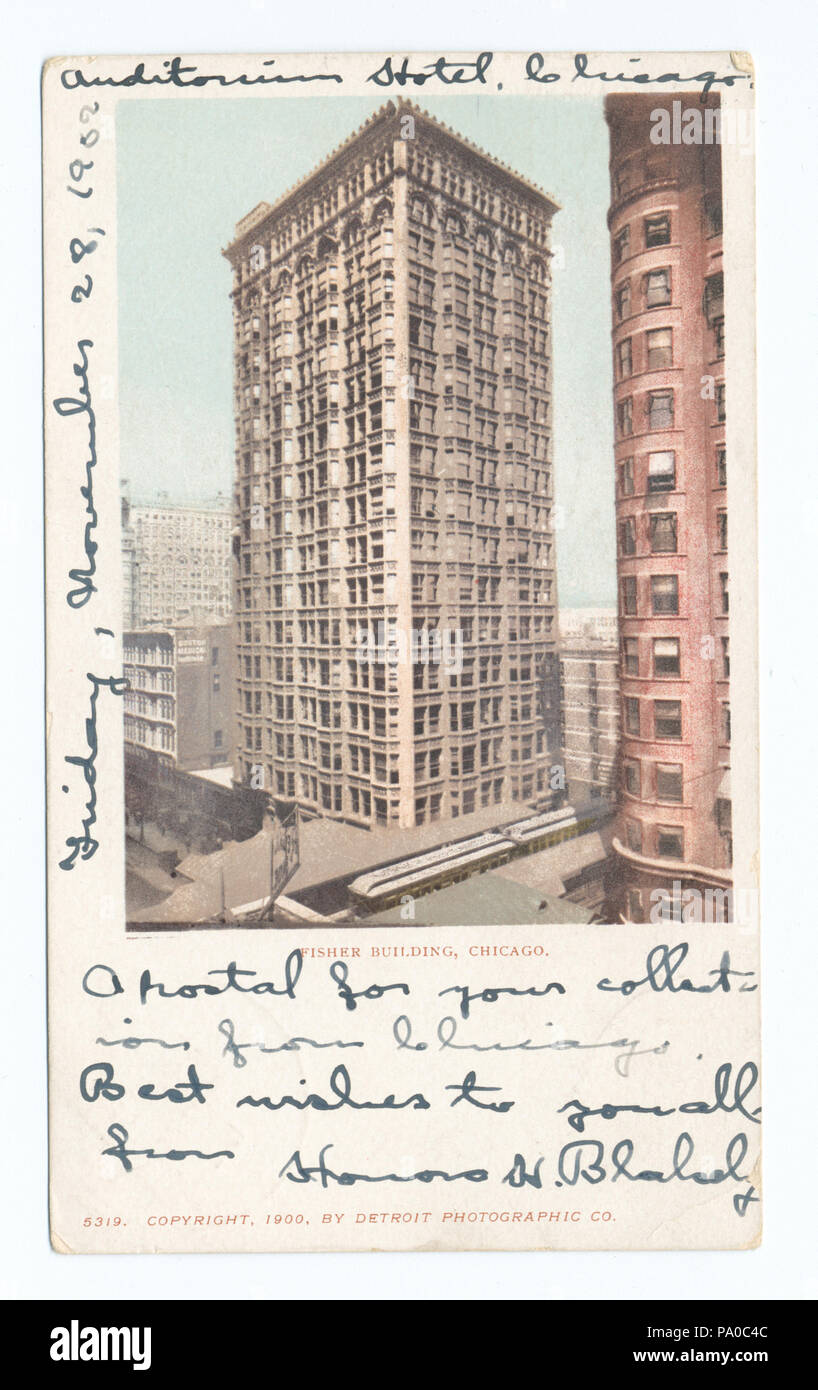 Auditorium Hotel, Chicago.
Friday, November 28, 1902
BOSTON
MEDICAL
FISHER BUILDING, CHICAGO.
A postal for your collect-
ion from Chicago.
Best wishes to you all
from Honoro H.
5319. COPYRIGHT, 1900, BY DETROIT PHOTOGRAPHIC CO.
alamy
alamy
Image ID: PA0C4C
www.alamy.com